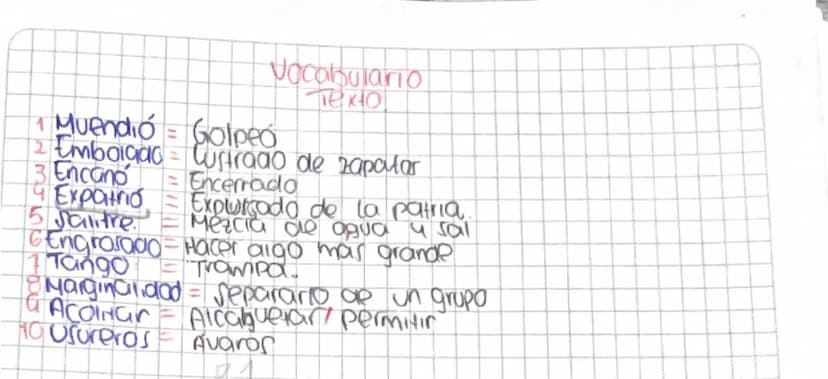 Vocabulario
Texto
1 Muendió = Golpeó
2 Embolado = Lustrado de zapatos
3 Encanó = Encerrado
4 Expatrió = Expulsado de la patria
5 Salitre. = Mezcla de agua y sal
6 Engrosado = Hacer algo mas grande
7 Tango = Trampa.
8 Marginalidad = Separarlo de un grupo
9 Acolitar = Alcaguetiar / permitir
10 Usureros = Avaros